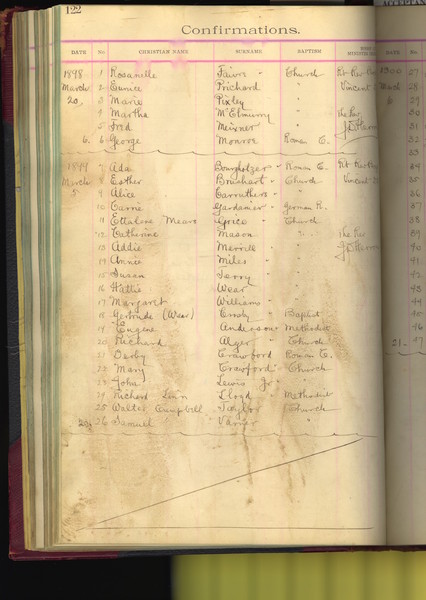 122
Confirmations.
DATE No. CHRISTIAN NAME SURNAME BAPTISM DATE No.
1898 1 Rosanelle Faivre " Church Rt Rev 1900 27
March 2 Eunice Prichard " Vincent March 28
20, 3 Marie Pixley " 29
4 Martha McElmurry " the Rev 30
5 Fred Meisner " 31
6. 6 George Monroe Roman C. 32
33
1899 7 Ada Roman C. Rt Rev 34
March 8 Esther Church Vincent 35
5 9 Alice Carruthers " " 36
10 Carrie Gardanier " German R. 37
11 Ettalore Mears Grice " Church 38
12 Catherine Mason " the Rev 39
13 Addie Merrill " " 40
14 Annie Miles " " 41
15 Susan Terry " " 42
16 Hattie Wear " " 43
17 Margaret Williams " " 44
18 Gertrude (Wear) Crosby Baptist 45
19 Eugene Anderson Methodist 46
20 Richard Alger " Church 21. 47
21 Derby Crawford Roman C.
22 Mary Crawford " Church
23 John Lewis Jr. " "
24 Richard Linn Lloyd Methodist
25 Walter Campbell Taylor Church
26 Samuel Varner "